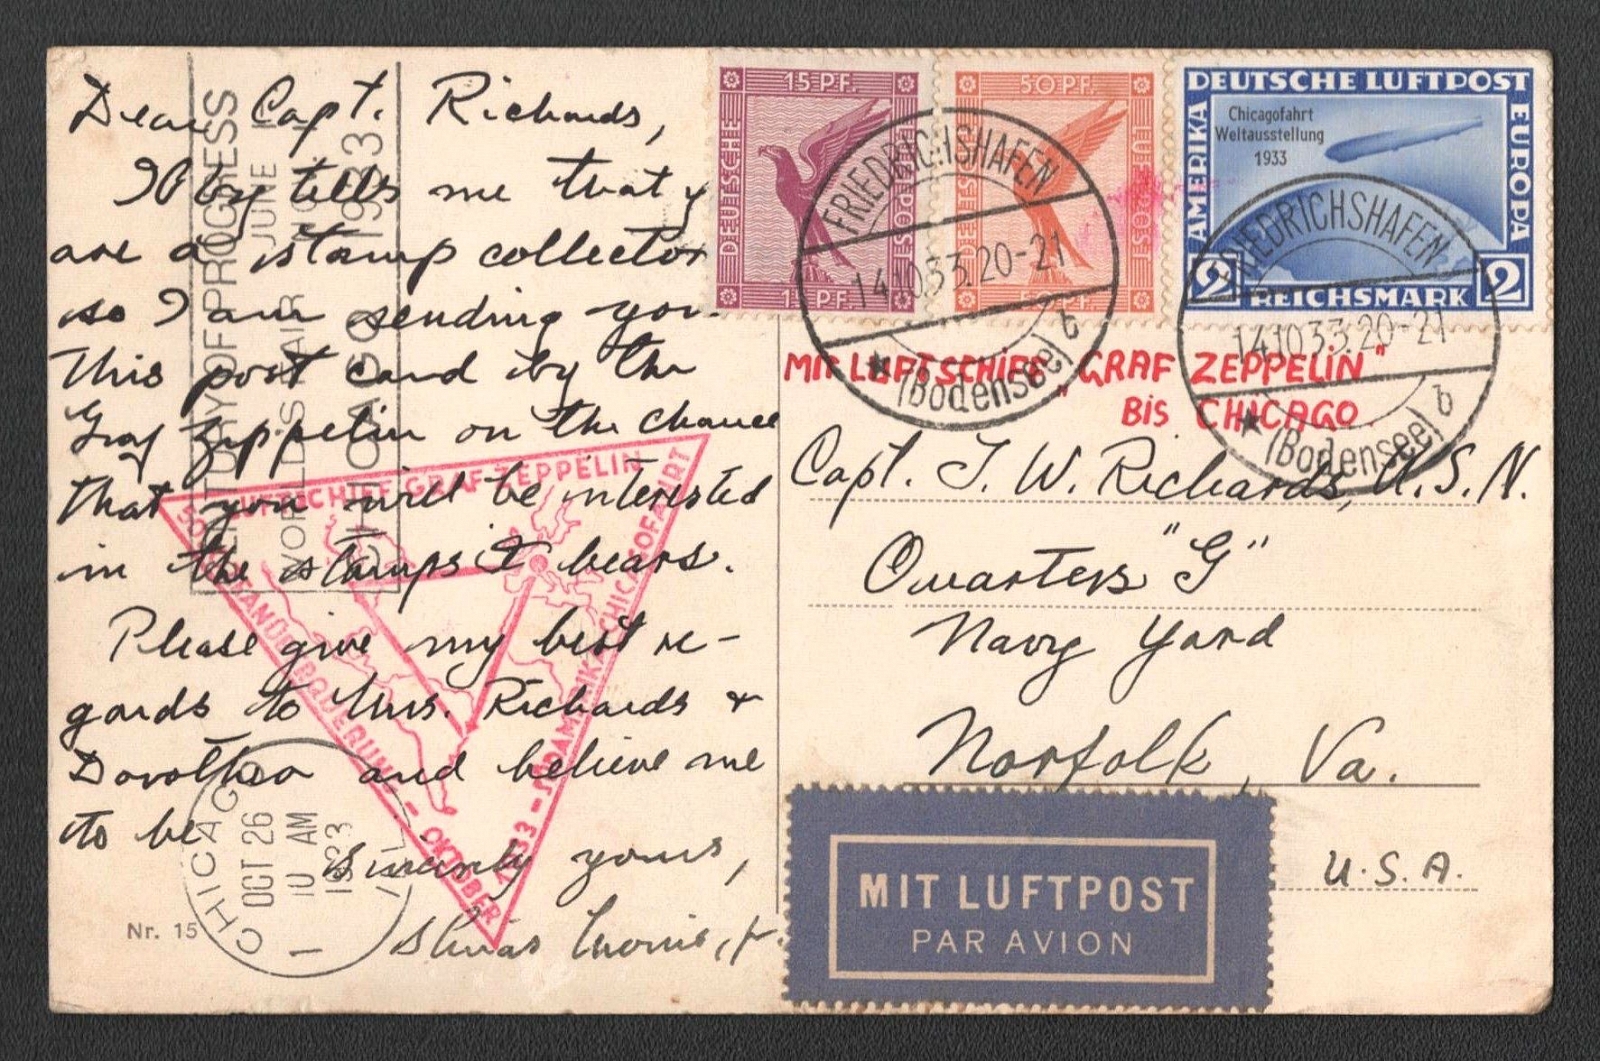 Dear Capt. Richards,
tells me that y
are a stamp collector
so I am sending you
this post card by the
Graf Zeppelin on the chance
that you will be interested
in the stamps it bears.
Please give my best re-
gards to Mrs. Richards &
Dorothea and believe me
to be
Sincerely yours,
Morris, Jr.
Nr. 15
CENTURY OF PROGRESS
WORLD'S FAIR
JUNE
CHICAGO 1933
LUFTSCHIFF GRAF ZEPPELIN
SÜDAMERIKA-CHICAGOFAHRT
OKTOBER 1933
CHICAGO
OCT 26
10 AM
1933
ILL.
1
15 PF.
DEUTSCHE
FLUGPOST
15 PF.
50 PF.
DEUTSCHE
FLUGPOST
50 PF.
DEUTSCHE LUFTPOST
AMERIKA
EUROPA
Chicagofahrt
Weltausstellung
1933
2 REICHSMARK 2
FRIEDRICHSHAFEN
14.10.33.20-21
b
(Bodensee)
FRIEDRICHSHAFEN
14.10.33.20-21
b
(Bodensee)
MIT LUFTSCHIFF "GRAF ZEPPELIN"
BIS CHICAGO.
Capt. T. W. Richards, U.S.N.
Quarters "G"
Navy Yard
Norfolk, Va.
U.S.A.
MIT LUFTPOST
PAR AVION